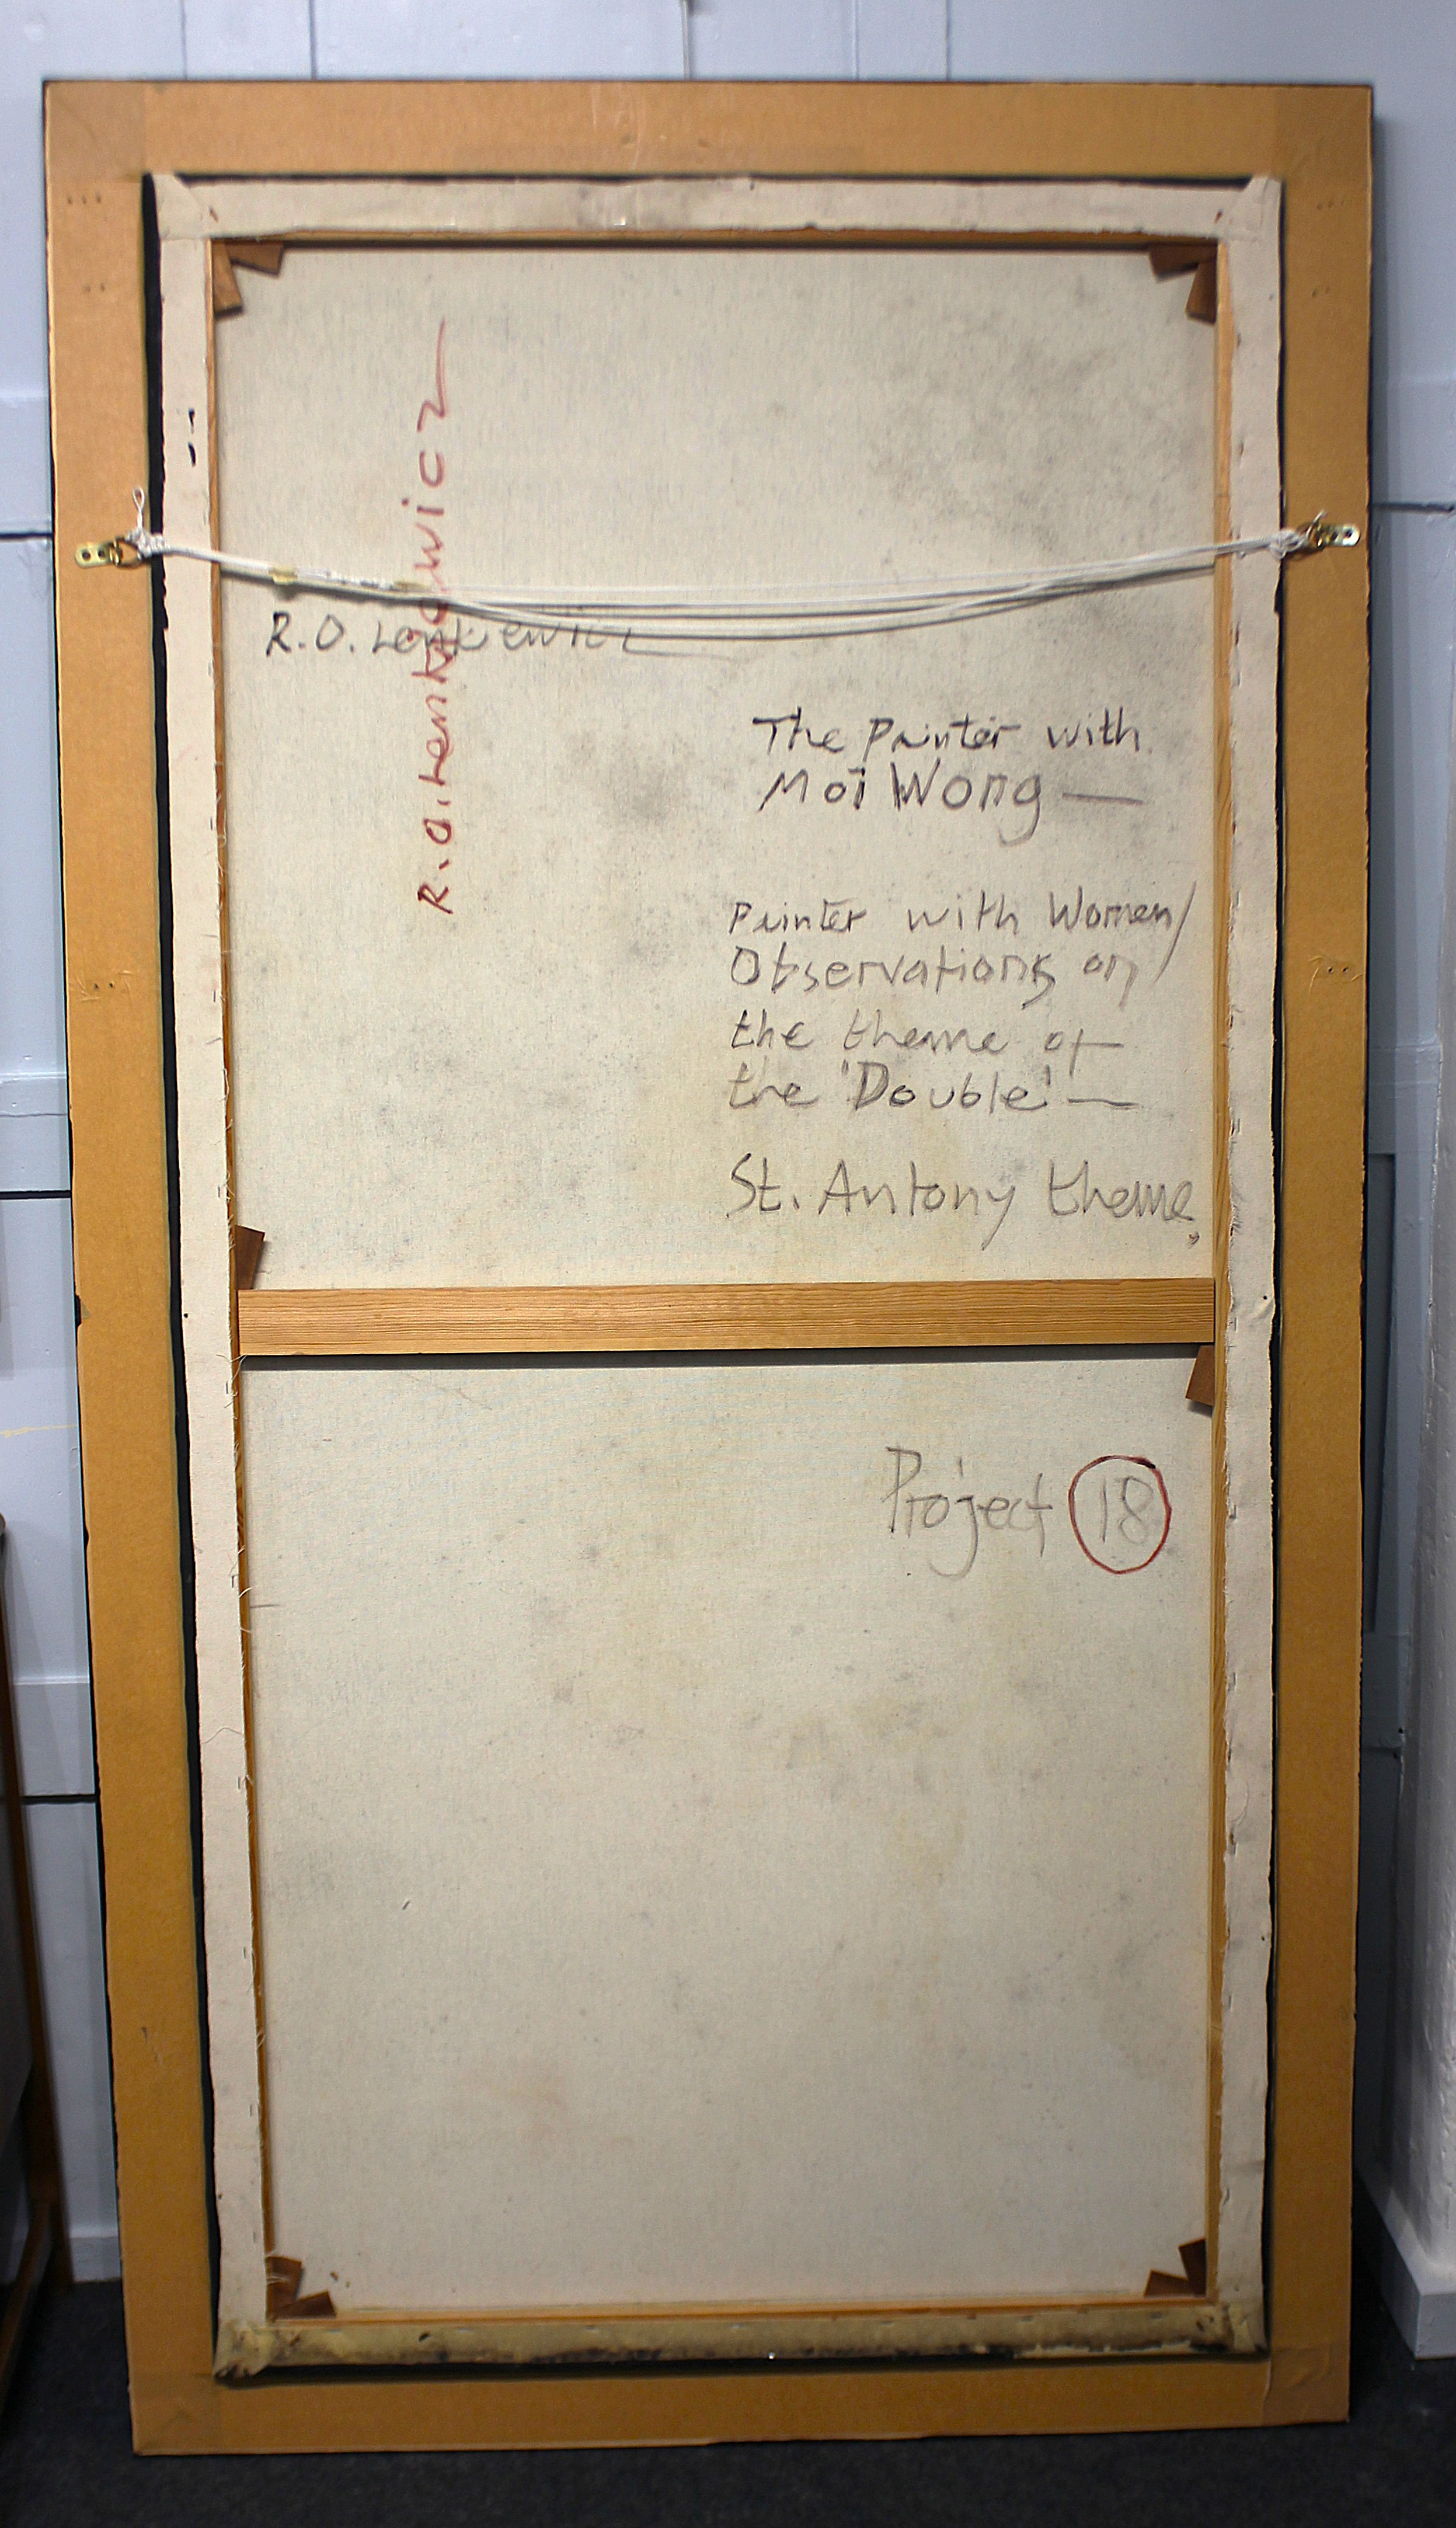 R.O. Lenkiewicz
R.O. Lenkiewicz
The Painter with
Moi Wong —
Painter with Women/
Observations on
the theme of
the 'Double' —
St. Antony theme.
Project 18